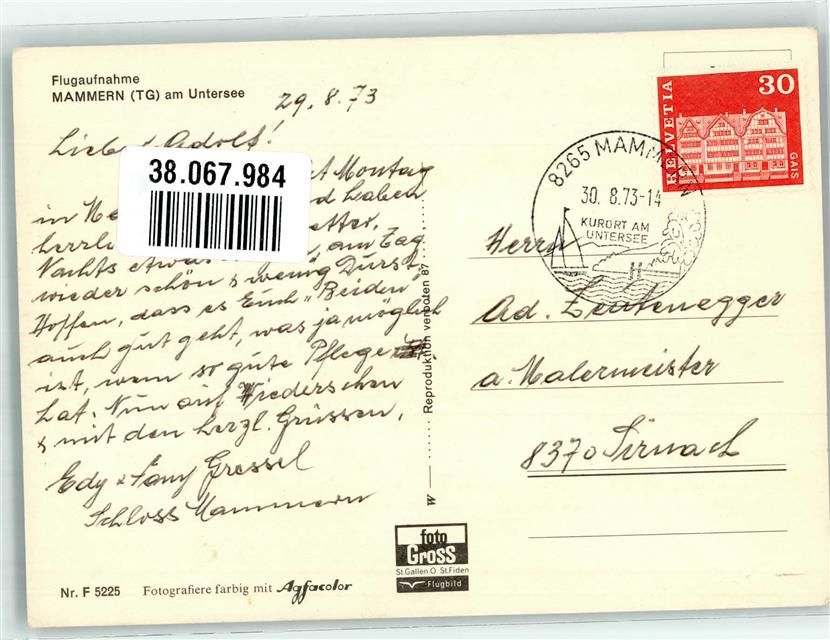 Flugaufnahme
MAMMERN (TG) am Untersee
29. 8. 73
Adolf!
38.067.984
Montag
in haben
herrli etter,
Nachts etwas am Tag
wieder schön & wenig Durst.
Hoffen, dass es Euch "Beiden"
auch gut geht, was ja möglich
ist, wenn so gute Pflege
hat. Nun auf Wiedersehen
& mit den herzl. Grüssen,
Edy & Fany Gressel
Schloss Mammern
Nr. F 5225 Fotografiere farbig mit Agfacolor
W Reproduktion verboten 87
foto
Gross
St. Gallen O St. Fiden
Flugbild
HELVETIA 30
GAIS
8265 MAMMERN
30. 8.73-14
KURORT AM
UNTERSEE
Herrn
Ad.
a. Malermeister
8370 Sirnach